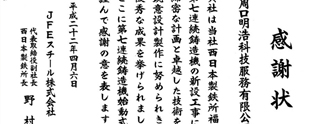 感謝状
周口明浩科技服務有限公
貴社は当社西日本製鉄所福
七連続鋳造機の新設工事に
密な計画と卓越した技術を
意設計製作に努められき
秀な成果を挙げられまし
ここに第七連続鋳造機始動式
謹んで感謝の意を表します
平成二十二年四月六日
JFEスチール株式会社
代表取締役副社長
西日本製鉄所長
野村